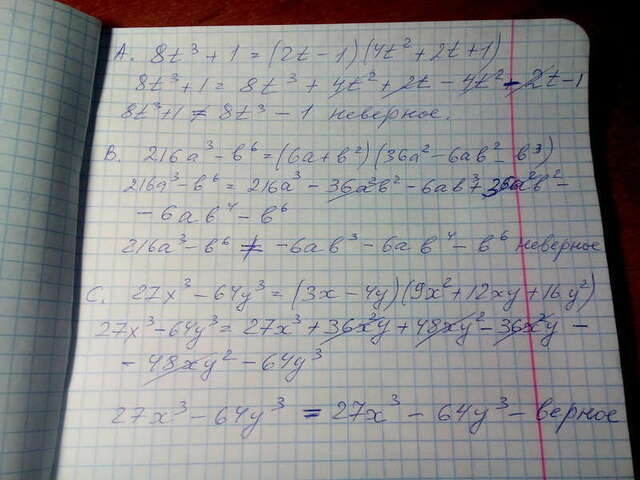 A. 8t³ + 1 = (2t - 1)(4t² + 2t + 1)
8t³ + 1 = 8t³ + 4t² + 2t - 4t² - 2t - 1
8t³ + 1 ≠ 8t³ - 1 неверное.
B. 216a³ - b⁶ = (6a + b²)(36a² - 6ab² - b³)
216a³ - b⁶ = 216a³ - 36a²b² - 6ab³ + 36a²b² -
- 6ab⁴ - b⁶
216a³ - b⁶ ≠ -6ab³ - 6ab⁴ - b⁶ неверное
C. 27x³ - 64y³ = (3x - 4y)(9x² + 12xy + 16y²)
27x³ - 64y³ = 27x³ + 36x²y + 48xy² - 36x²y -
- 48xy² - 64y³
27x³ - 64y³ = 27x³ - 64y³ - верное